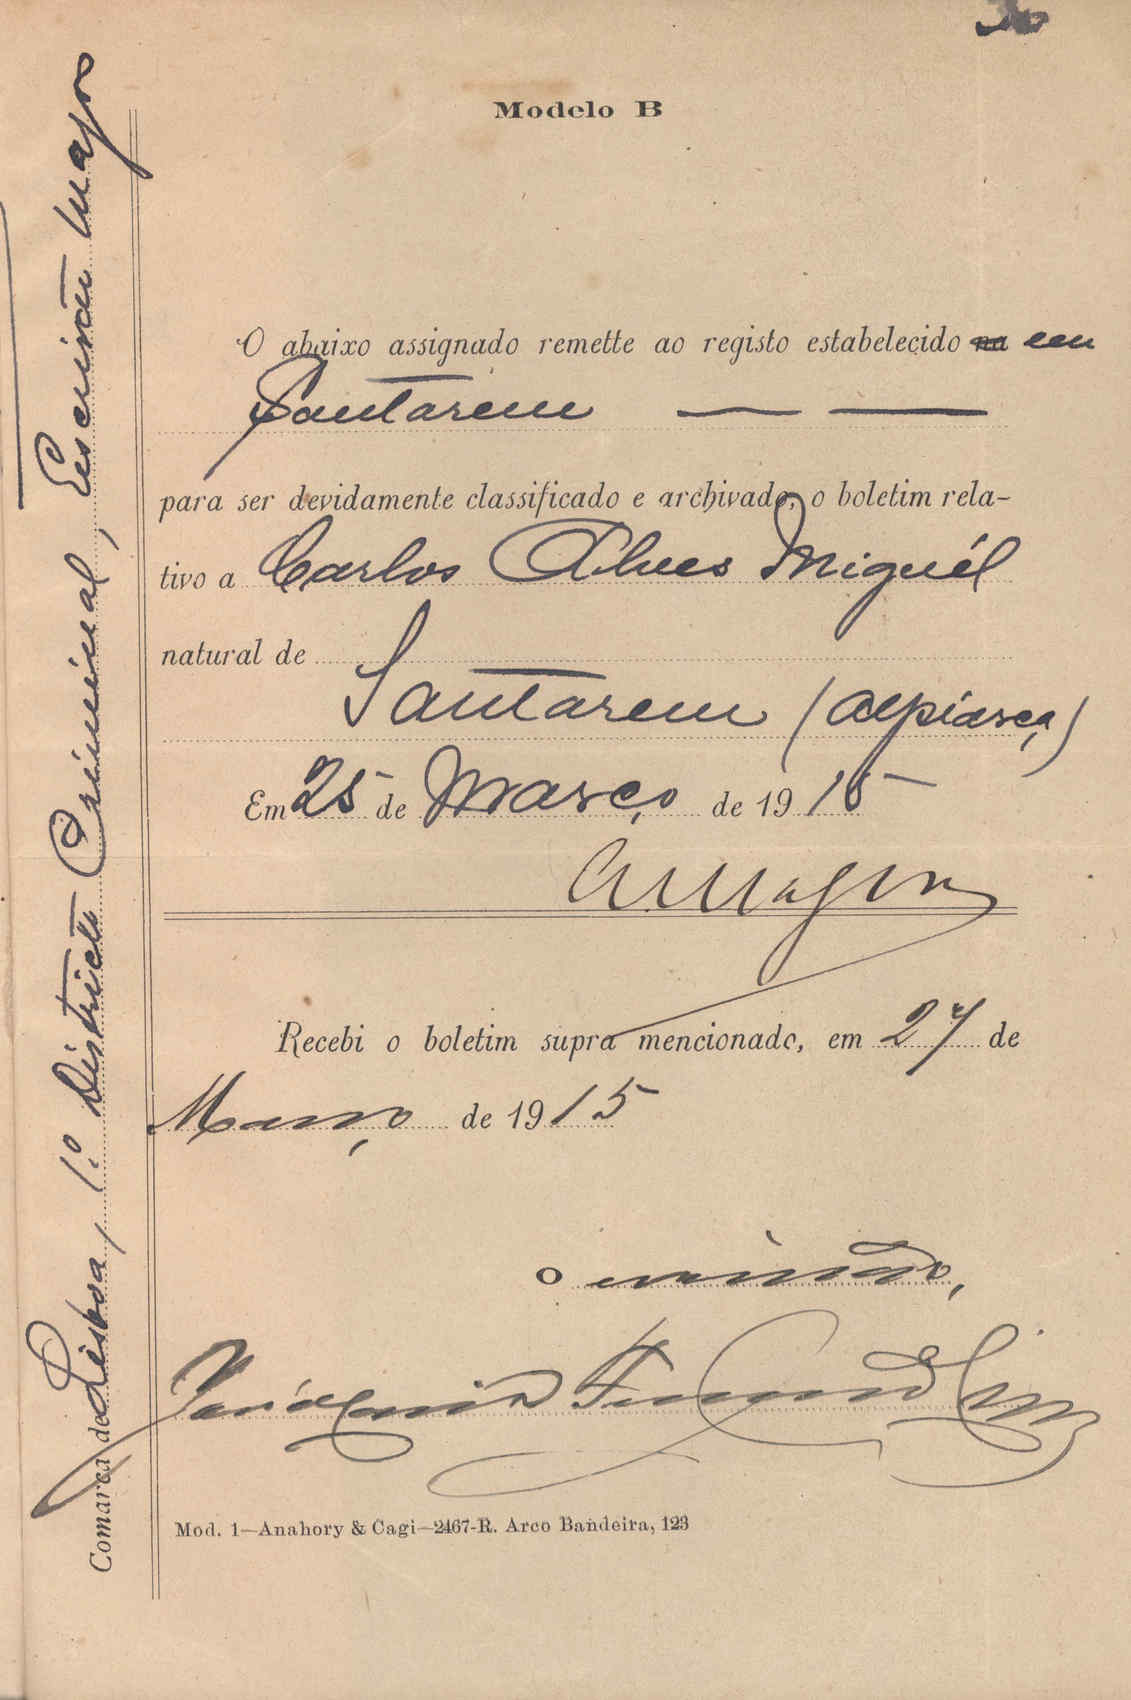 Modelo B
O abaixo assignado remette ao registo estabelecido na em
Santarem
para ser devidamente classificado e archivado, o boletim rela-
tivo a Carlos Alves Miguél
natural de
Santarem (Alpiarça)
Em 25 de Março de 1915
Recebi o boletim supra mencionado, em 27 de
Março de 1915
O escrivão,
Mod. 1—Anahory & Cagi—2467-R. Arco Bandeira, 123
Comarca de Lisboa, 1.º Districto Criminal, Escrivão